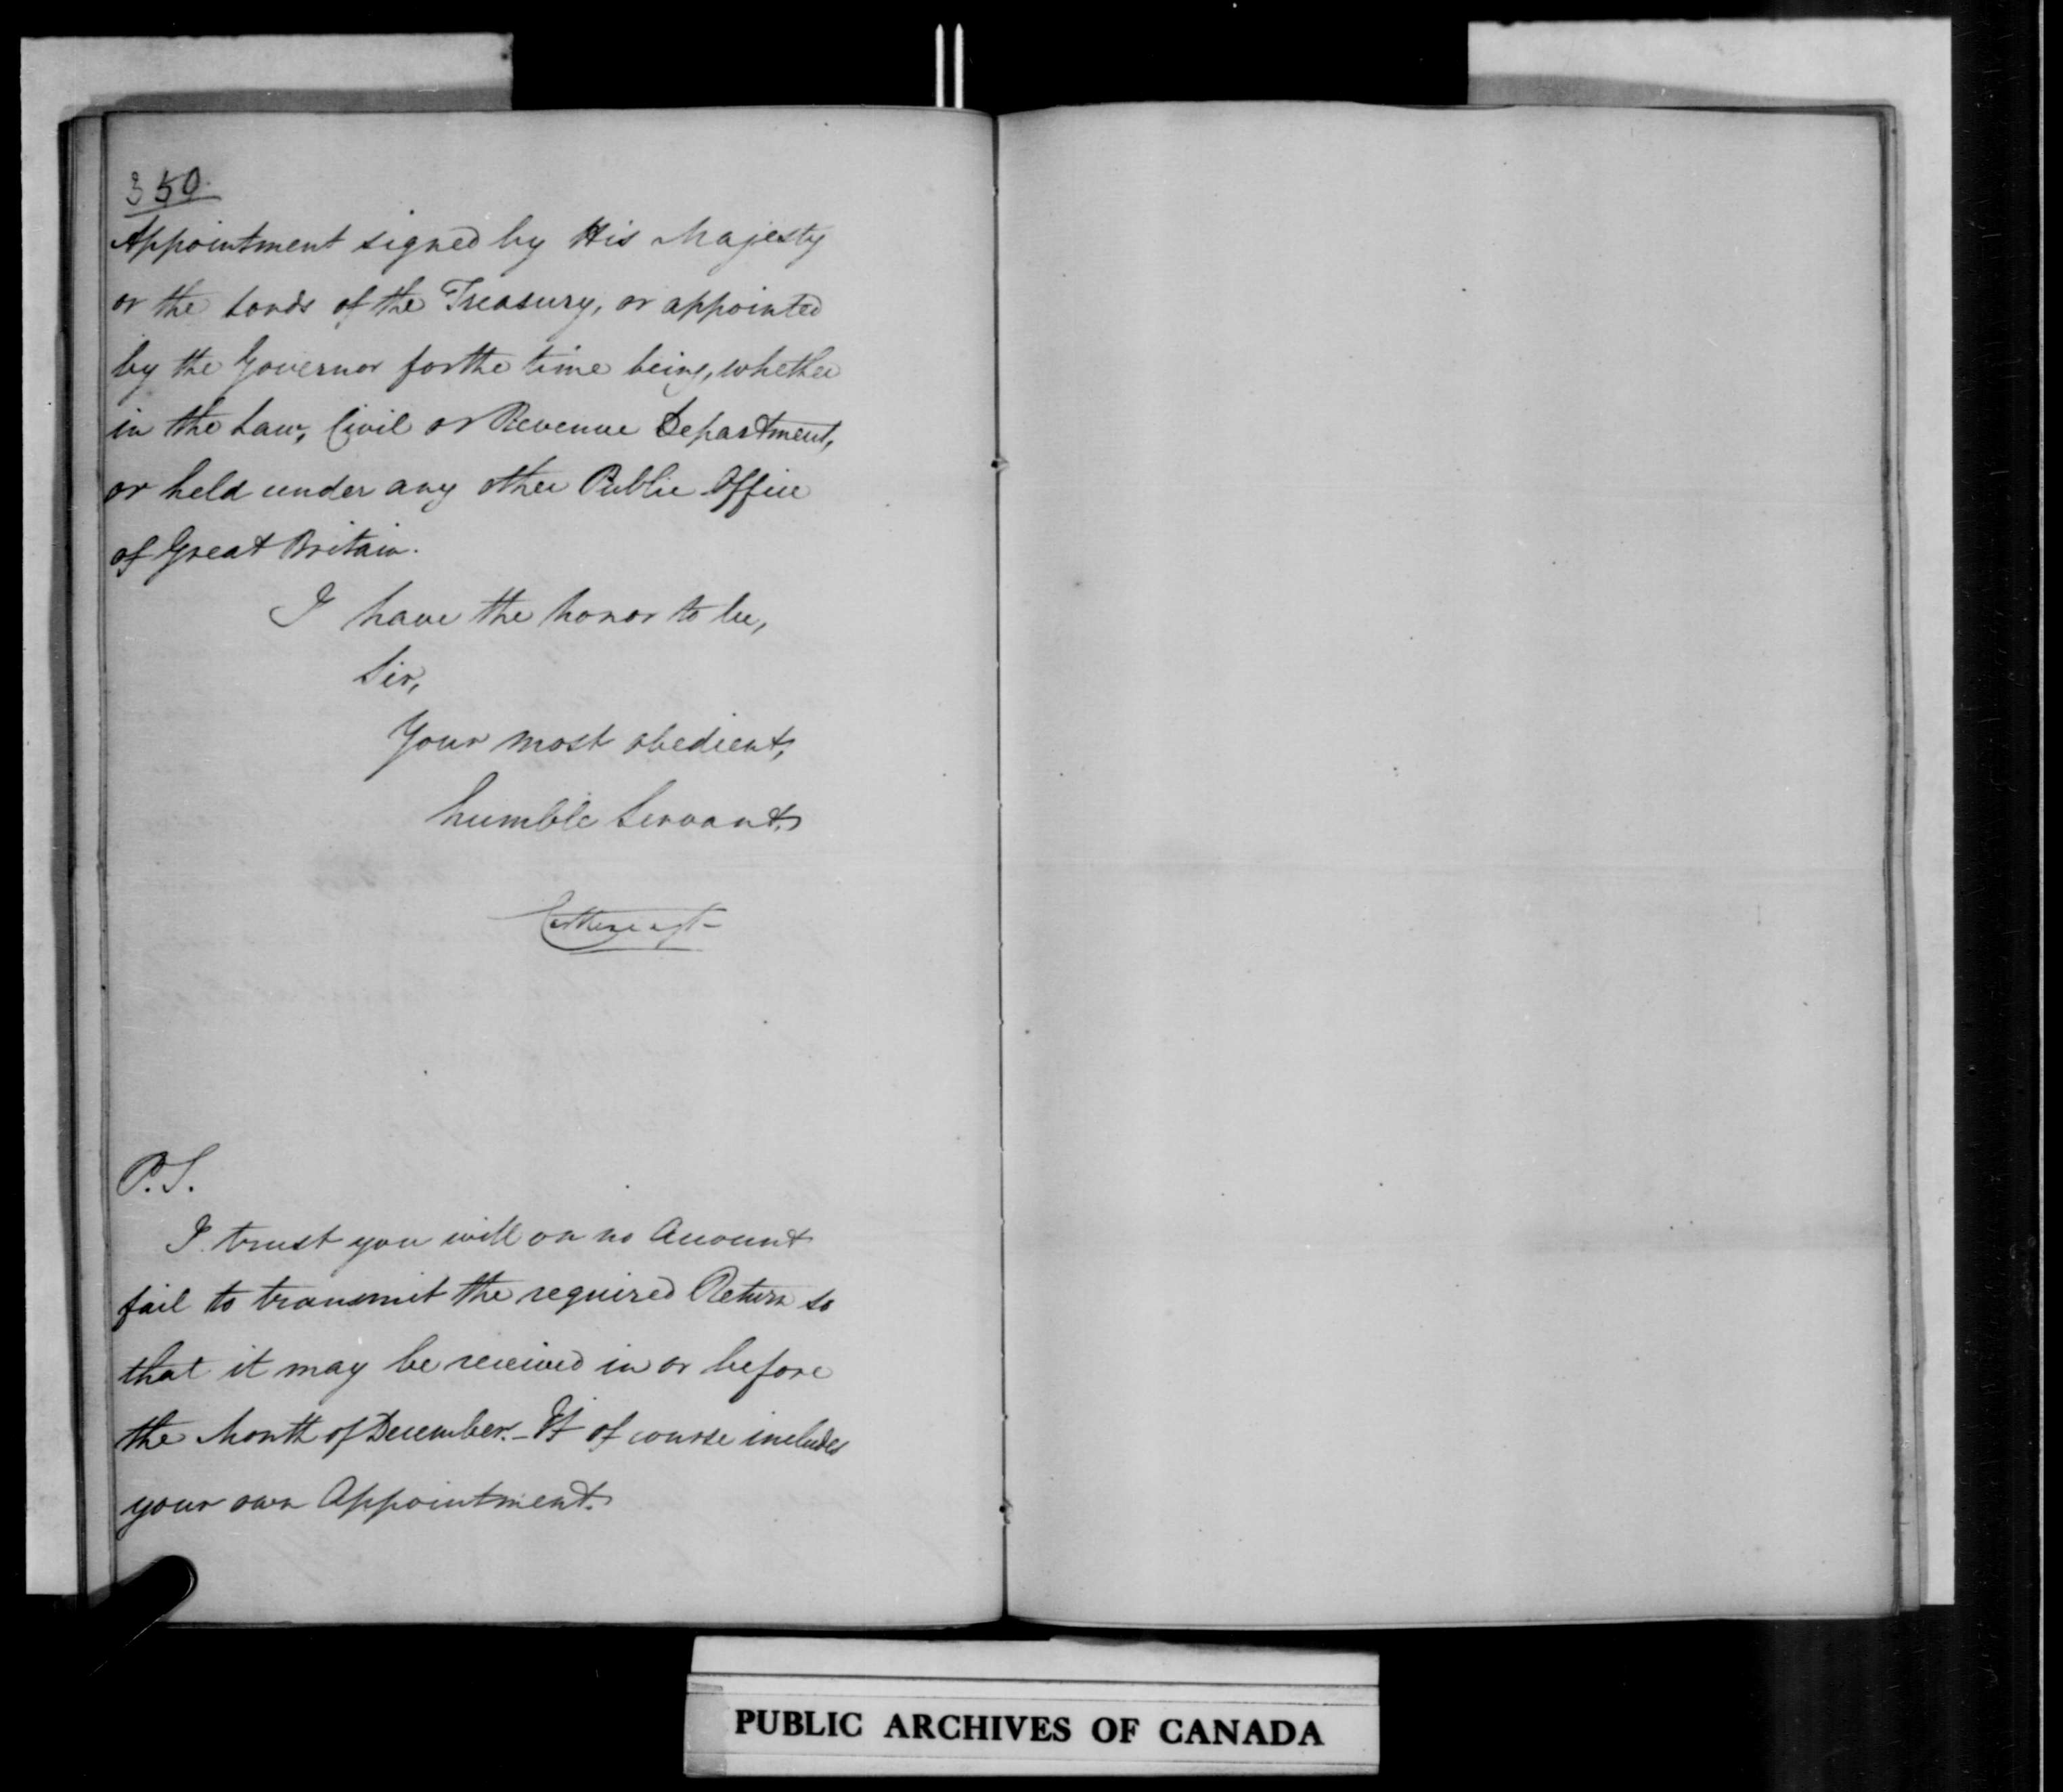 350.
Appointment signed by His Majesty
or the Lords of the Treasury, or appointed
by the Governor for the time being, whether
in the Law, Civil or Revenue Department,
or held under any other Public Office
of Great Britain.
I have the honor to be,
Sir,
Your most obedient,
humble Servant,
P.S.
I trust you will on no Account
fail to transmit the required Return so
that it may be received in or before
the Month of December. - It of course includes
your own Appointment.
PUBLIC ARCHIVES OF CANADA